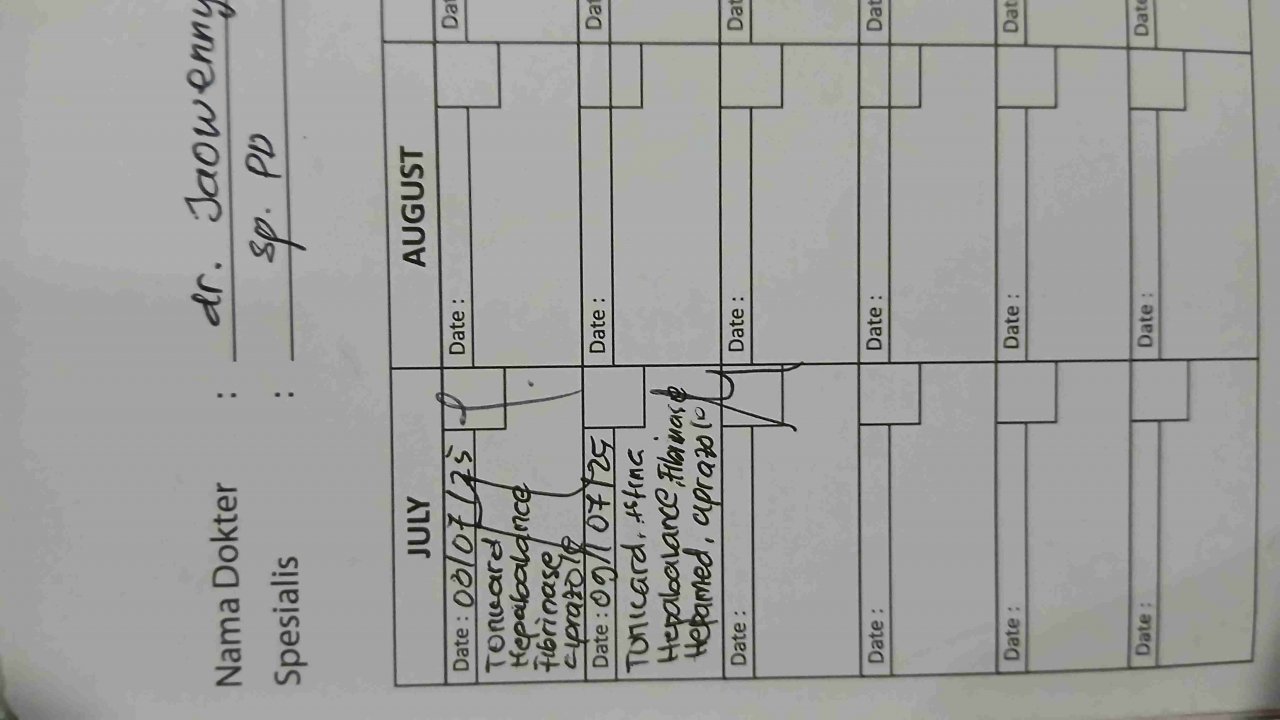 Nama Dokter : dr. Jaowenny
Spesialis : Sp. PD
JULY AUGUST
Date : 03/07/25 Date : Dat
Tonicard
Hepabalance
Fibrinase
Ciprazole
Date : 09/07/25 Date : Dat
Tonicard,
Hepabalance, Fibrinase
Hepamed, Ciprazole
Date : Date : Dat
Date : Date : Dat
Date : Date : Dat
Date : Date : Date